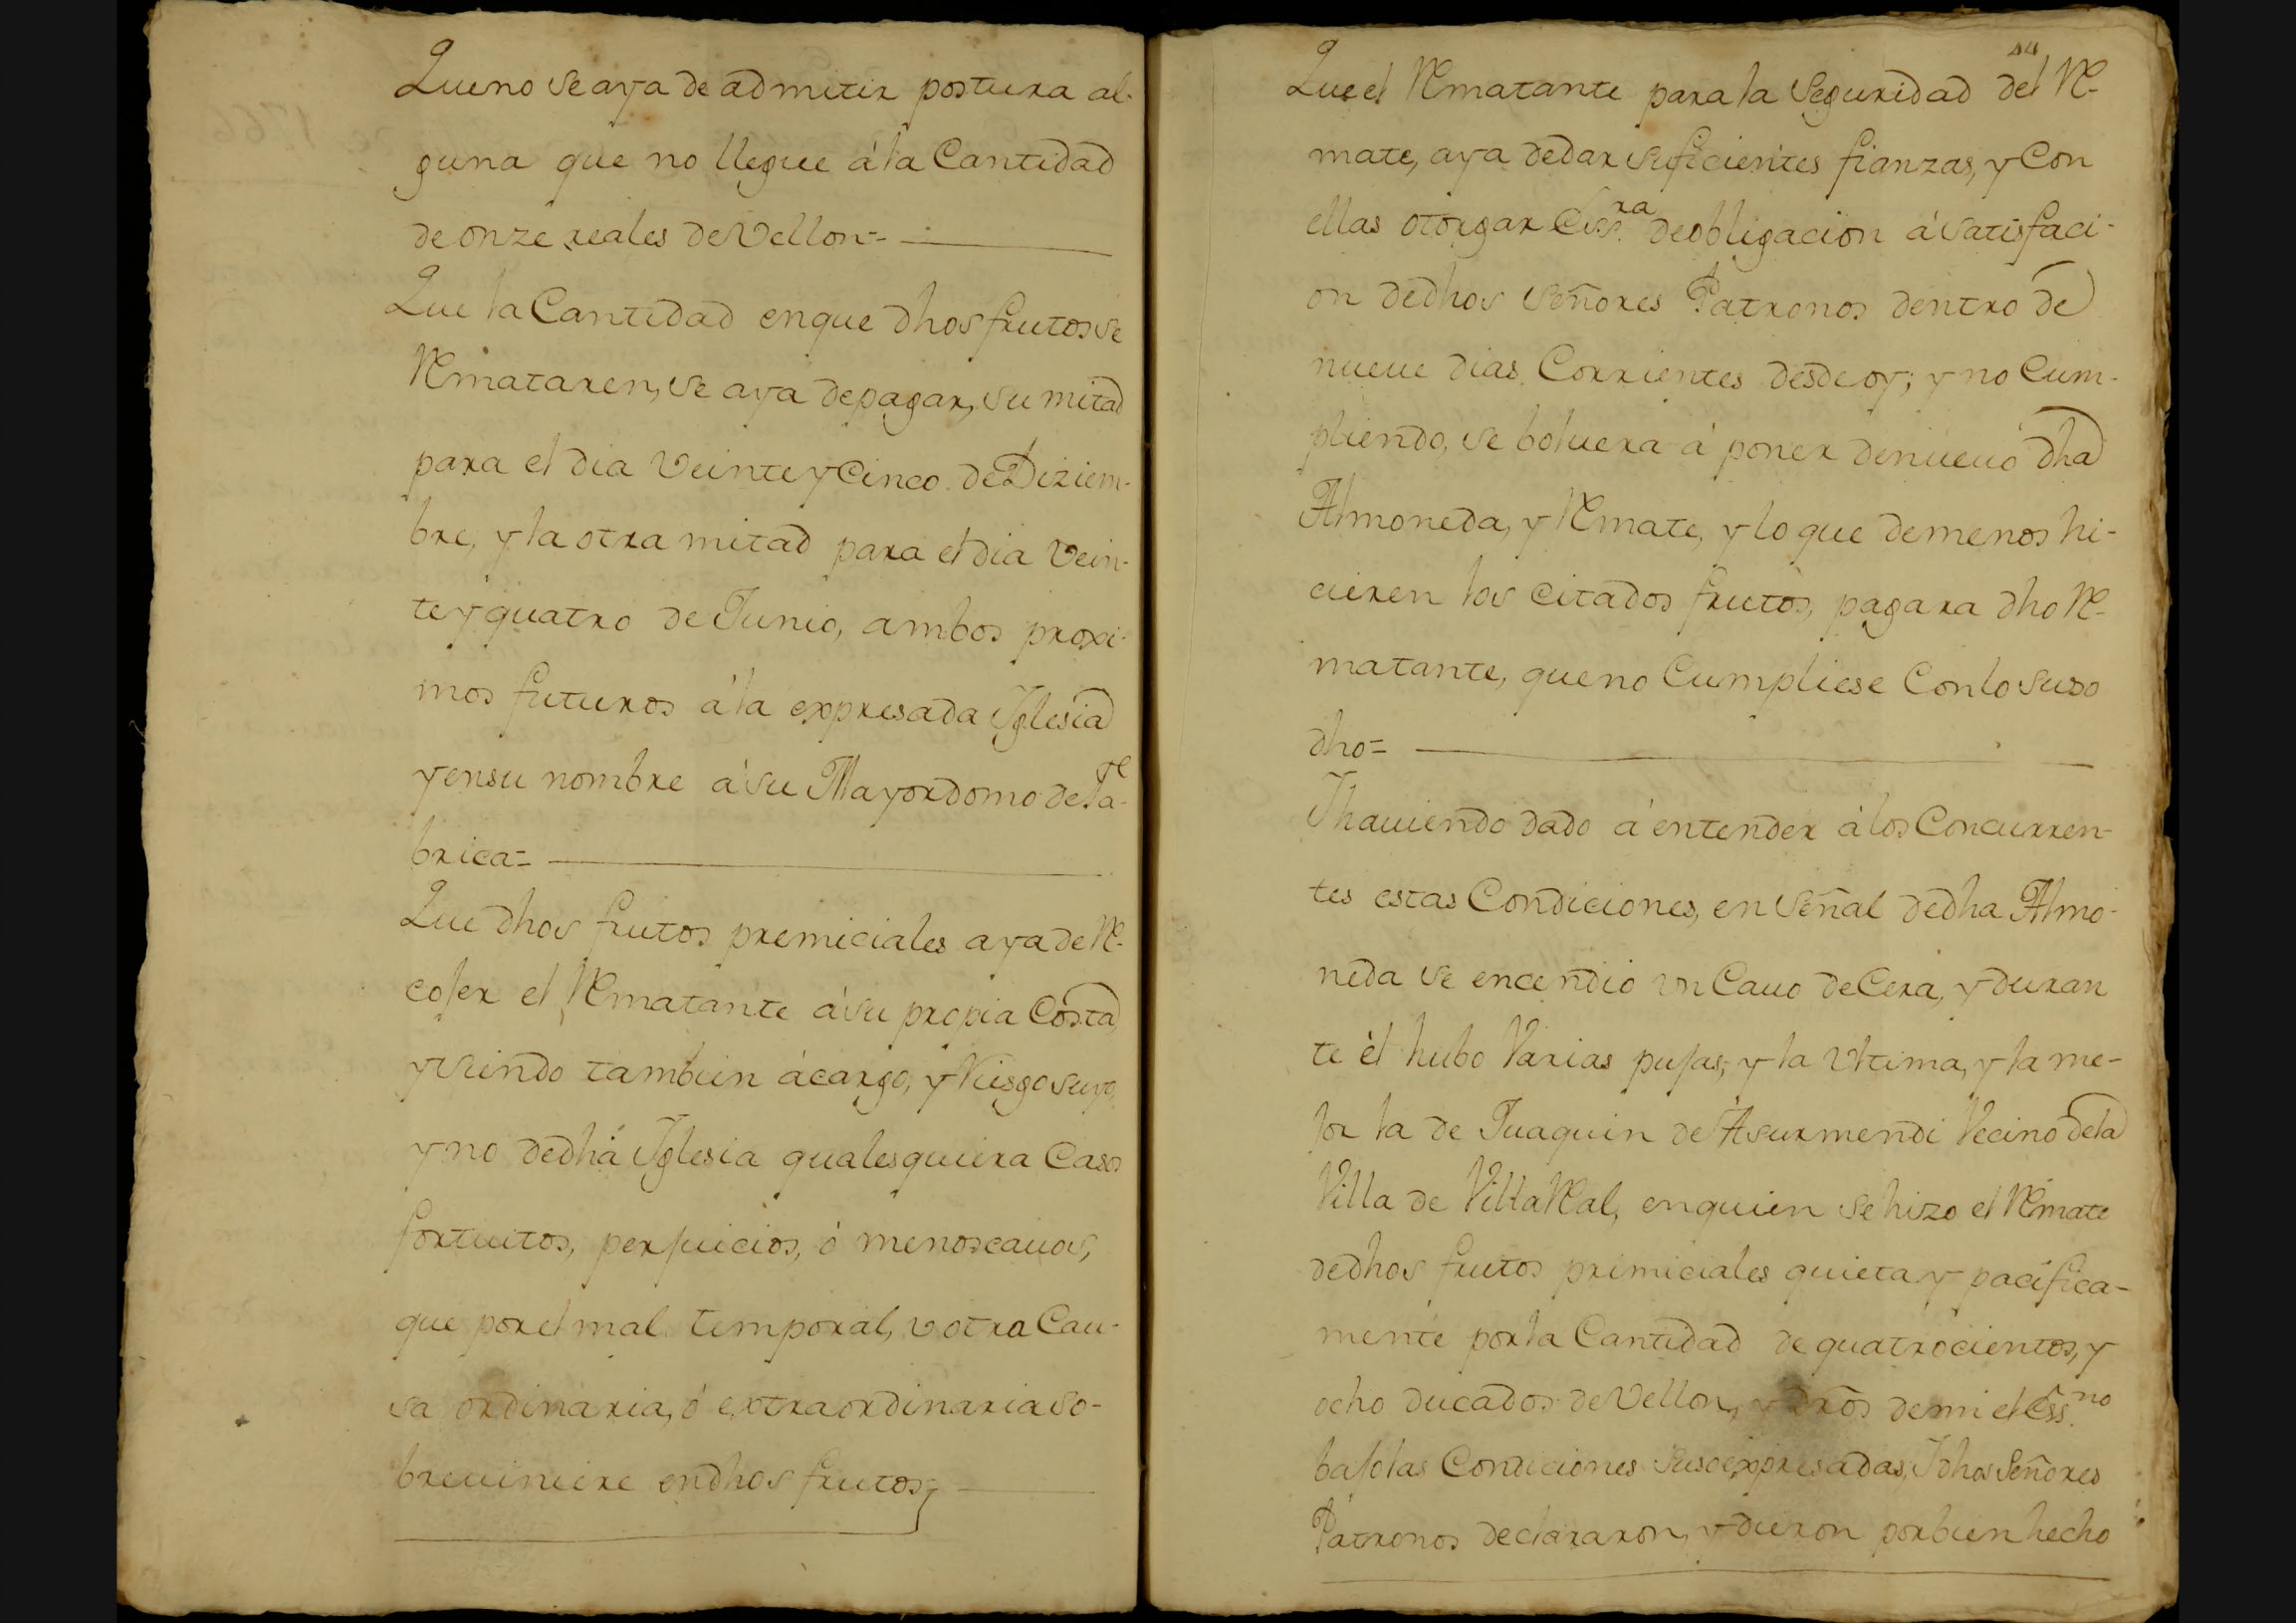 Que no se aya de admitir postura al-
guna que no llegue á la Cantidad
de onze reales de Vellon=
Que la Cantidad en que dhos frutos se
Remataren, se aya de pagar, su mitad
para el dia Veinte y Cinco de Diziem-
bre, y la otra mitad para el dia Vein-
te y quatro de Junio, ambos proxi-
mos futuros á la expresada Iglesia
y en su nombre á su Mayordomo de Fa-
brica=
Que dhos frutos premiciales aya de Re-
cojer el Rematante á su propia Costa,
y siendo tambien á cargo, y Riesgo suyo,
y no de dhá Iglesia qualesquiera Casos
fortuitos, perjuicios, ó menoscauos,
que por el mal temporal, v otra Cau-
sa ordinaria, ó extraordinaria so-
breuiniere en dhos frutos;
44
Que el Rematante para la Seguridad del Re-
mate, aya de dar suficientes fianzas, y Con
ellas otorgar Ess.ra de obligacion á satisfaci-
on de dhos Señores Patronos dentro de
nueue dias Corrientes desde oy; y no Cum-
pliendo, se boluera á poner de nueuo dha
Almoneda, y Remate, y lo que de menos hi-
cieren los citados frutos, pagara dho Re-
matante, que no Cumpliese Con lo suso
dho=
Y hauiendo dado á entender á los Concurren-
tes estas Condiciones, en señal de dha Almo-
neda se encendio vn Cauo de Cera, y duran
te él hubo Varias pujas, y la Vltima, y la me-
jor la de Juaquin de Asurmendi Vecino de la
Villa de Villa Real, en quien se hizo el Remate
de dhos frutos primiciales quieta y pacifica-
mente por la Cantidad de quatrocientos, y
ocho ducados de Vellon, y dros de mi el Ess.no
bajo las Condiciones suso expresadas, Y dhos Señores
Patronos declararon, y dieron por bien hecho